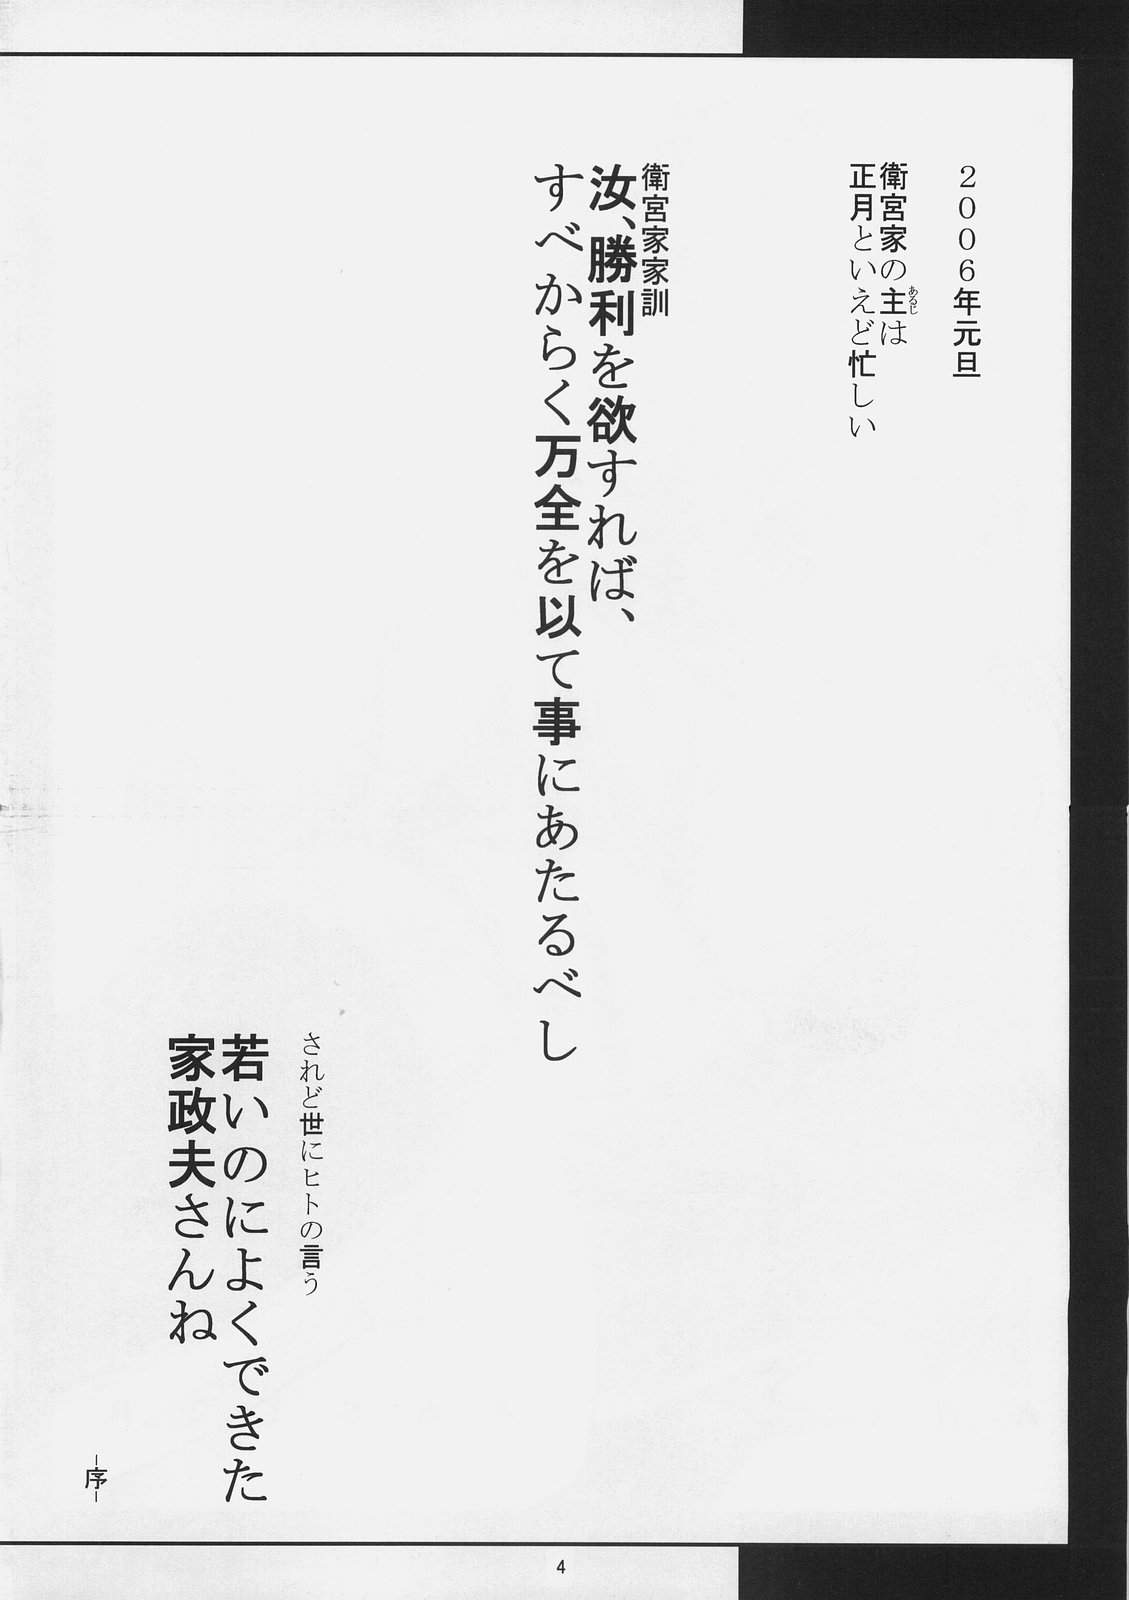 2006年元旦
衛宮家の主は
あるじ
正月といえど忙しい
衛宮家家訓
汝、勝利を欲すれば、
すべからく万全を以て事にあたるべし
されど世にヒトの言う
若いのによくできた
家政夫さんね
-序-
4